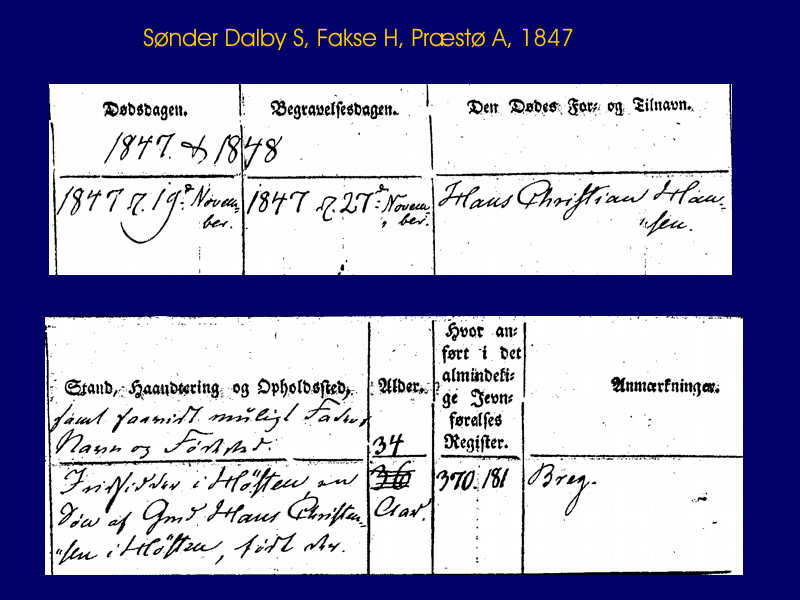 Sønder Dalby S, Fakse H, Præstø A, 1847
Dødsdagen.
Begravelsesdagen.
Den Dødes For- og Tilnavn.
1847. & 1848
1847 d. 19d Novem-
ber.
1847 d. 27d Novem-
ber.
Hans Christian Han-
"sen.
Stand, Haandtering og Opholdssted,
samt saavidt muligt Faders
Navn og Fødested.
Alder.
Hvor an-
ført i det
almindeli-
ge Jevn-
førelses
Register.
Anmærkninger.
Indsidder i Høsten, en
Søn af Gmd Hans Christen-
"sen i Høsten, født der.
34
36
Aar.
370. 181